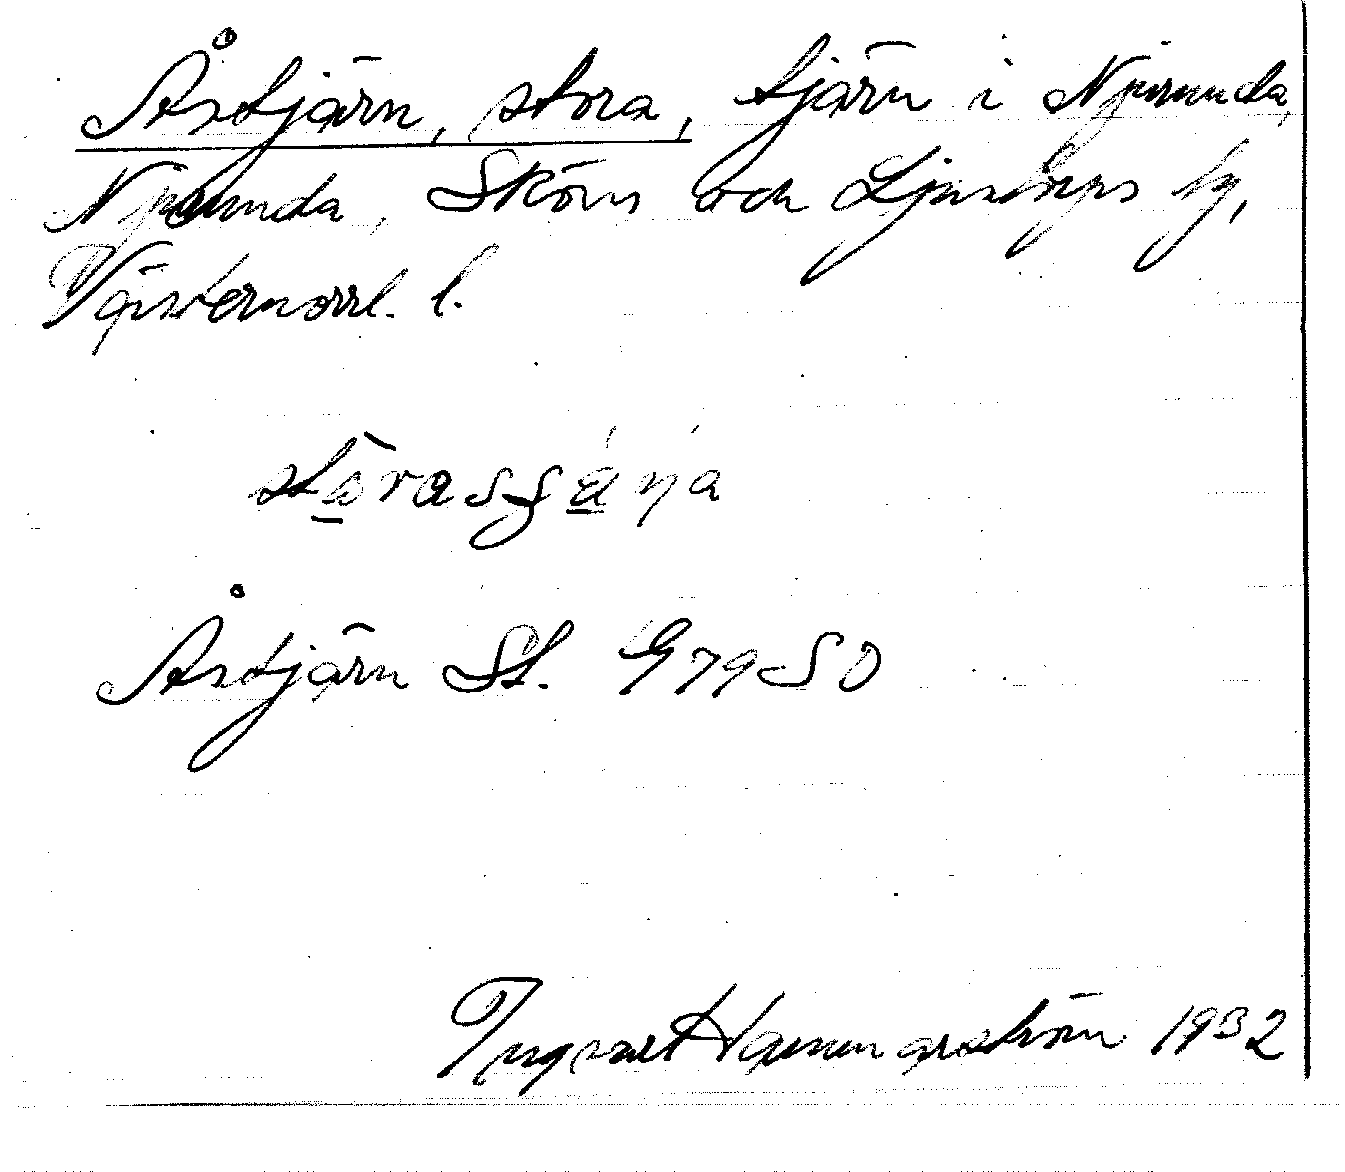 Åstjärn, stora, tjärn i Njurunda,
Njurunda, Sköns och Ljustorps tg,
Västernorrl. l.
Åstjärn St. G79 SO
Ingvart Hammarström 1932